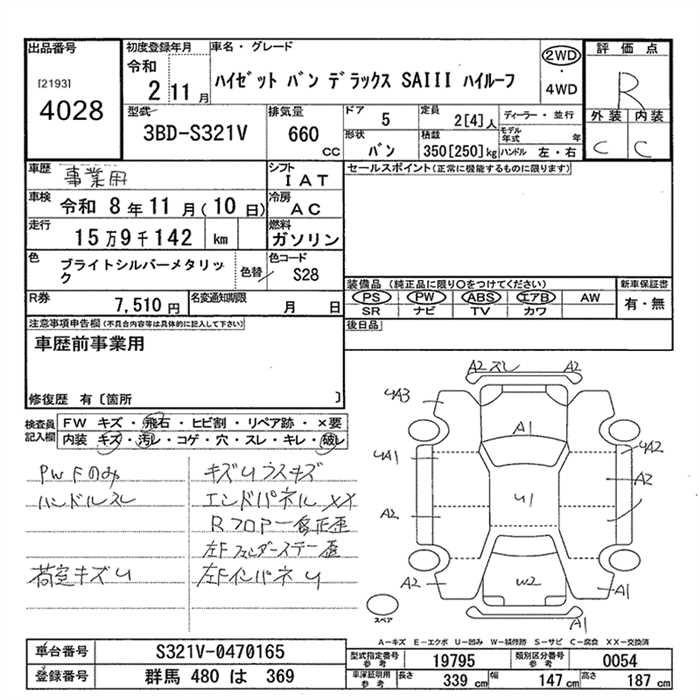 出品番号
[2193]
4028
初度登録年月
令和
2 11 月
車名・グレード
ハイゼット バン デラックス SAIII ハイルーフ
2WD
・
4WD
評価点
R
外装 内装
C C
型式
3BD-S321V
排気量
660
CC
ドア
5
定員
2[4]人
ディーラー・並行
形状
バン
積載
350[250]kg
モデル年式 年
ハンドル 左・右
車歴
事業用
シフト
IAT
車検
令和 8年 11月(10日)
冷房
AC
走行
15万9千142 km
燃料
ガソリン
色
ブライトシルバーメタリック
色替
色コード
S28
R券
7,510 円
名変通知期限
月 日
セールスポイント(正常に機能するものに限ります)
装備品(純正品に限り○をつけてください)
PS PW ABS エアB AW
SR ナビ TV カワ
新車保証書
有・無
後日品
注意事項申告欄(不具合内容等は具体的に記入して下さい)
車歴前事業用
修復歴 有〔箇所 〕
検査員記入欄
FW キズ・飛石・ヒビ割・リペア跡・×要
内装 キズ・汚レ・コゲ・穴・スレ・キレ・破レ
PWFのみ
ハンドルスレ
荷室キズU
キズUラスキズ
エンドパネルXX
Rフロアー修正歪
左Fフェンダーステー歪
左FインパネU
A2 スレ A2
UA3
A1
UA1
UA2
U1
A2
A2
A2
W2
A1
A1
スペア
A-キズ E-エクボ U-凹み W-補修跡 S-サビ C-腐食 XX-交換済
車台番号
S321V-0470165
登録番号
群馬 480 は 369
型式指定番号
参考
19795
類別区分番号
参考
0054
車庫証明用
参考
長さ
339 cm
幅
147 cm
高さ
187 cm